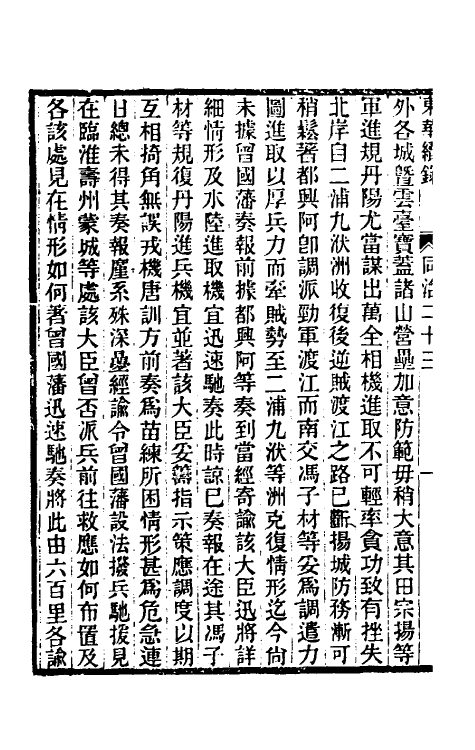 東華續錄　同治二十三　一
外各城暨雲臺寶蓋諸山營壘加意防範毋稍大意其田宗揚等
軍進規丹陽尤當謀出萬全相機進取不可輕率貪功致有挫失
北岸自二浦九洑洲收復後逆賊渡江之路已斷揚城防務漸可
稍鬆著都興阿卽調派勁軍渡江而南交馮子材等妥爲調遣力
圖進取以厚兵力而牽賊勢至二浦九洑等洲克復情形迄今尙
未據曾國藩奏報前據都興阿等奏到當經寄諭該大臣迅將詳
細情形及水陸進取機宜迅速馳奏此時諒已奏報在途其馮子
材等規復丹陽進兵機宜並著該大臣妥籌指示策應調度以期
互相掎角無誤戎機唐訓方前奏爲苗練所困情形甚爲危急連
日總未得其奏報廑系殊深疊經諭令曾國藩設法撥兵馳援見
在臨淮壽州蒙城等處該大臣曾否派兵前往救應如何布置及
各該處見在情形如何著曾國藩迅速馳奏將此由六百里各諭